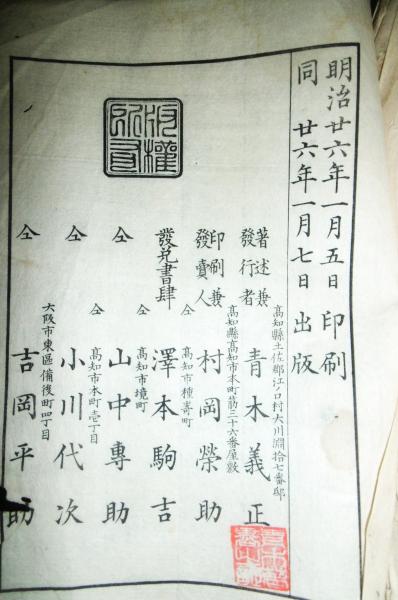 明治廿六年一月五日印刷
同廿六年一月七日出版
版權所有
高知縣土佐郡江ノ口村大川淵拾七番邸
著述兼發行者 青木義正
高知縣高知市本町筋三十六番屋敷
印刷兼發賣人 村岡榮助
仝 高知市種崎町
發兌書肆 澤本駒吉
高知市境町
仝 山中專助
仝 高知市本町壱丁目
仝 小川代次
大阪市東區備後町四丁目
仝 吉岡平助